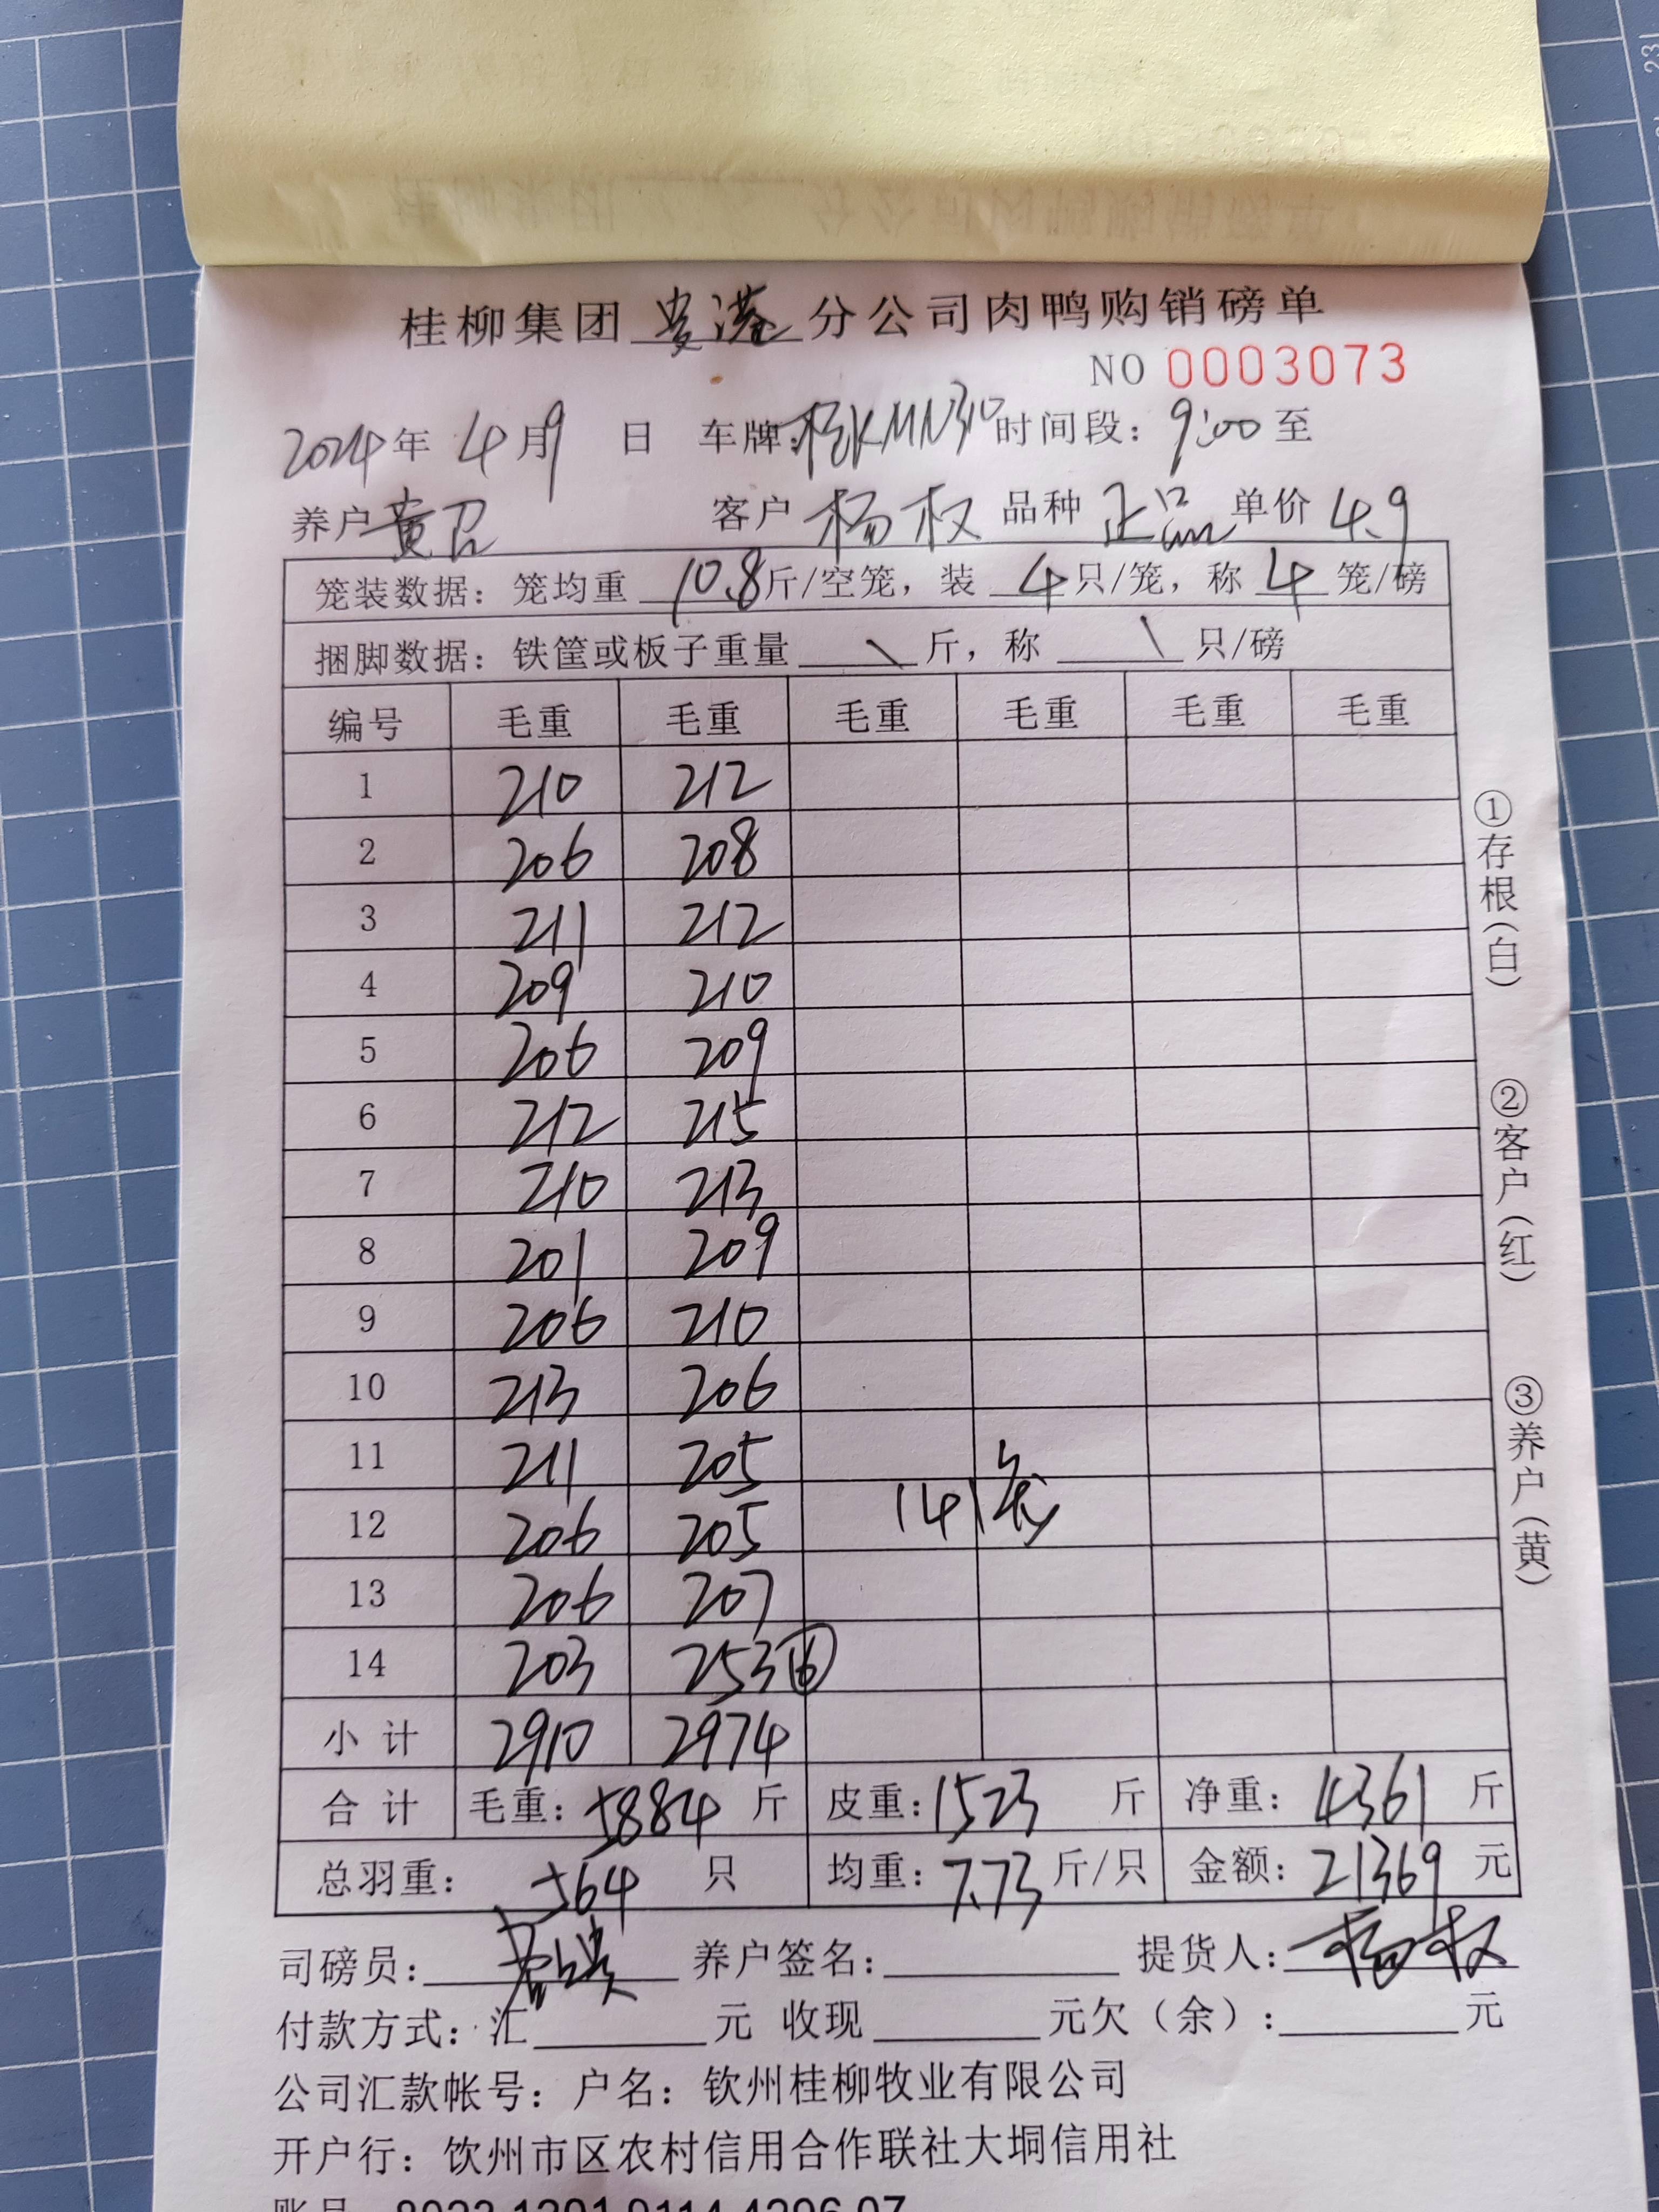 桂柳集团贵港分公司肉鸭购销磅单
NO 0003073
2024年 4月9 日 车牌:桂KMN310 时间段：9:00至
养户 黄召 客户 杨权 品种 正品 单价 4.9
笼装数据：笼均重 10.8 斤/空笼，装 4 只/笼，称 4 笼/磅
捆脚数据：铁筐或板子重量 \ 斤，称 \ 只/磅
编号 毛重 毛重 毛重 毛重 毛重 毛重
1 210 212
2 206 208
3 211 212
4 209 210
5 206 209
6 212 215
7 210 213
8 201 209
9 206 210
10 213 206
11 211 205
12 206 205 141笼
13 206 207
14 203 253 ⑯
小 计 2910 2974
合 计 毛重：5884 斤 皮重：1523 斤 净重：4361 斤
总羽重： 564 只 均重：7.73 斤/只 金额：21369 元
①存根（白） ②客户（红） ③养户（黄）
司磅员： 养户签名： 提货人：杨权
付款方式：汇 元 收现 元欠（余）： 元
公司汇款帐号：户名：钦州桂柳牧业有限公司
开户行：钦州市区农村信用合作联社大垌信用社